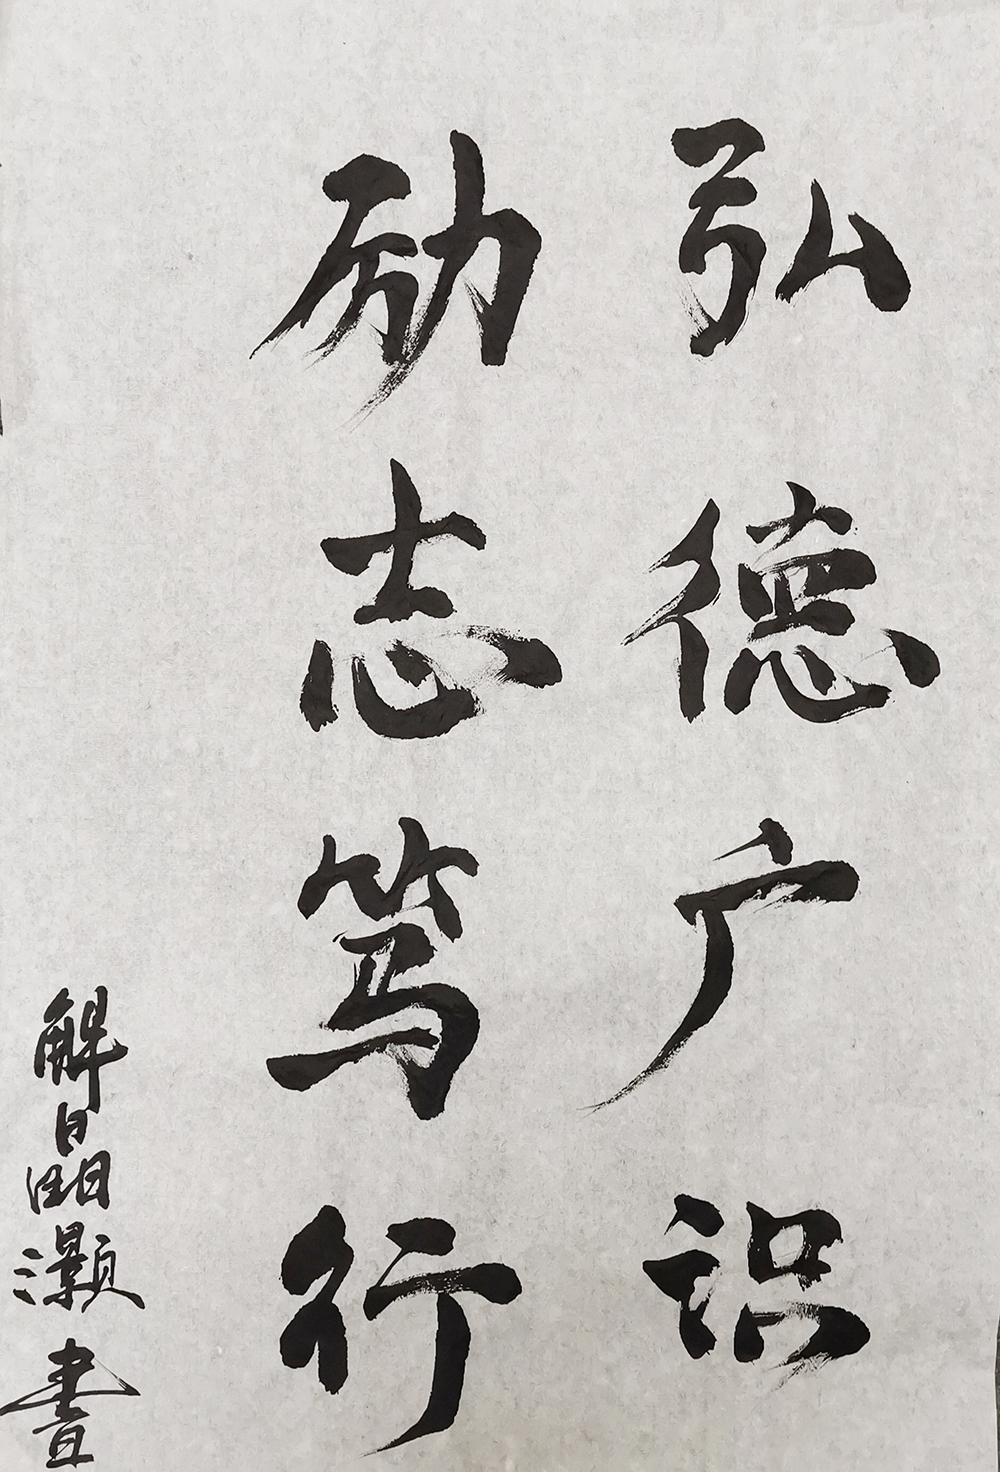 弘德广识
励志笃行
解晶灏書